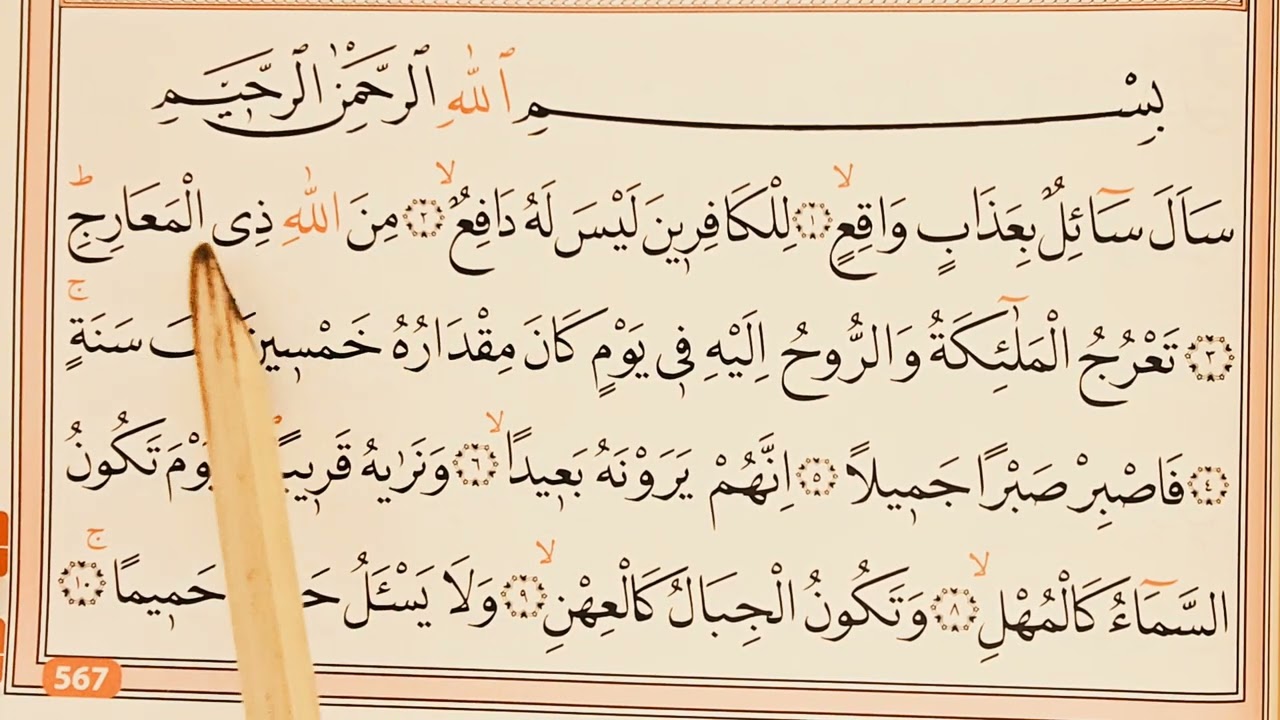 بِسْمِ ٱللّٰهِ ٱلرَّحْمٰنِ ٱلرَّحٖيمِ
سَاَلَ سَٓائِلٌ بِعَذَابٍ وَاقِعٍۙ ﴿١﴾ لِلْكَافِرٖينَ لَيْسَ لَهُ دَافِعٌۙ ﴿٢﴾ مِنَ اللّٰهِ ذِى الْمَعَارِجِؕ
﴿٣﴾ تَعْرُجُ الْمَلٰٓئِكَةُ وَالرُّوحُ اِلَيْهِ فٖى يَوْمٍ كَانَ مِقْدَارُهُ خَمْسٖينَ سَنَةٍۚ
﴿٤﴾ فَاصْبِرْ صَبْرًا جَمٖيلًا ﴿٥﴾ اِنَّهُمْ يَرَوْنَهُ بَعٖيدًاۙ ﴿٦﴾ وَنَرٰيهُ قَرٖيبًا تَكُونُ
السَّمَٓاءُ كَالْمُهْلِۙ ﴿٨﴾ وَتَكُونُ الْجِبَالُ كَالْعِهْنِۙ ﴿٩﴾ وَلَا يَسْـَٔلُ حَمٖيمًاۚ ﴿١٠﴾
567